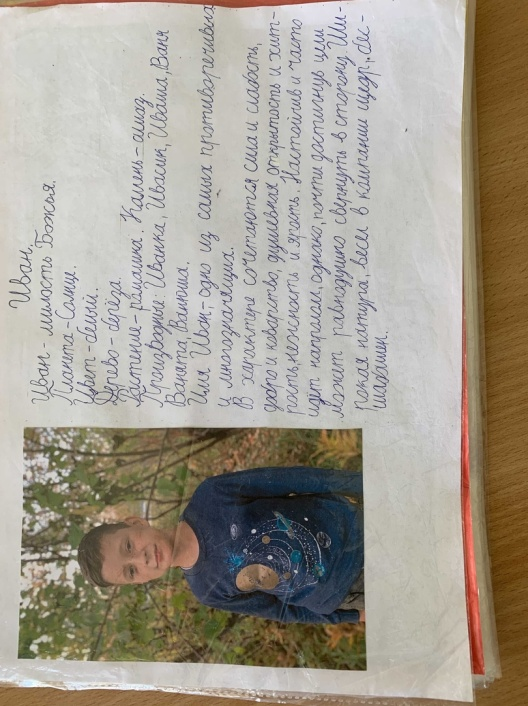 Иван.
Иван - милость Божья.
Планета - Солнце.
Цвет - белый.
Дерево - берёза.
Растение - ромашка. Камень - алмаз.
Производные: Иванка, Ивасик, Иваша, Ваня
Ванята, Ванюша.
Имя Иван, одно из самых противоречивых
и многозначных.
В характере сочетаются сила и слабость,
добро и коварство, душевная открытость и хит-
рость, нежность и ярость. Настойчив и часто
идёт напролом, однако, почти достигнув цели
может равнодушно свернуть в сторону. Ши-
рокая натура, весел в кампании щедр, бес-
шабашен.